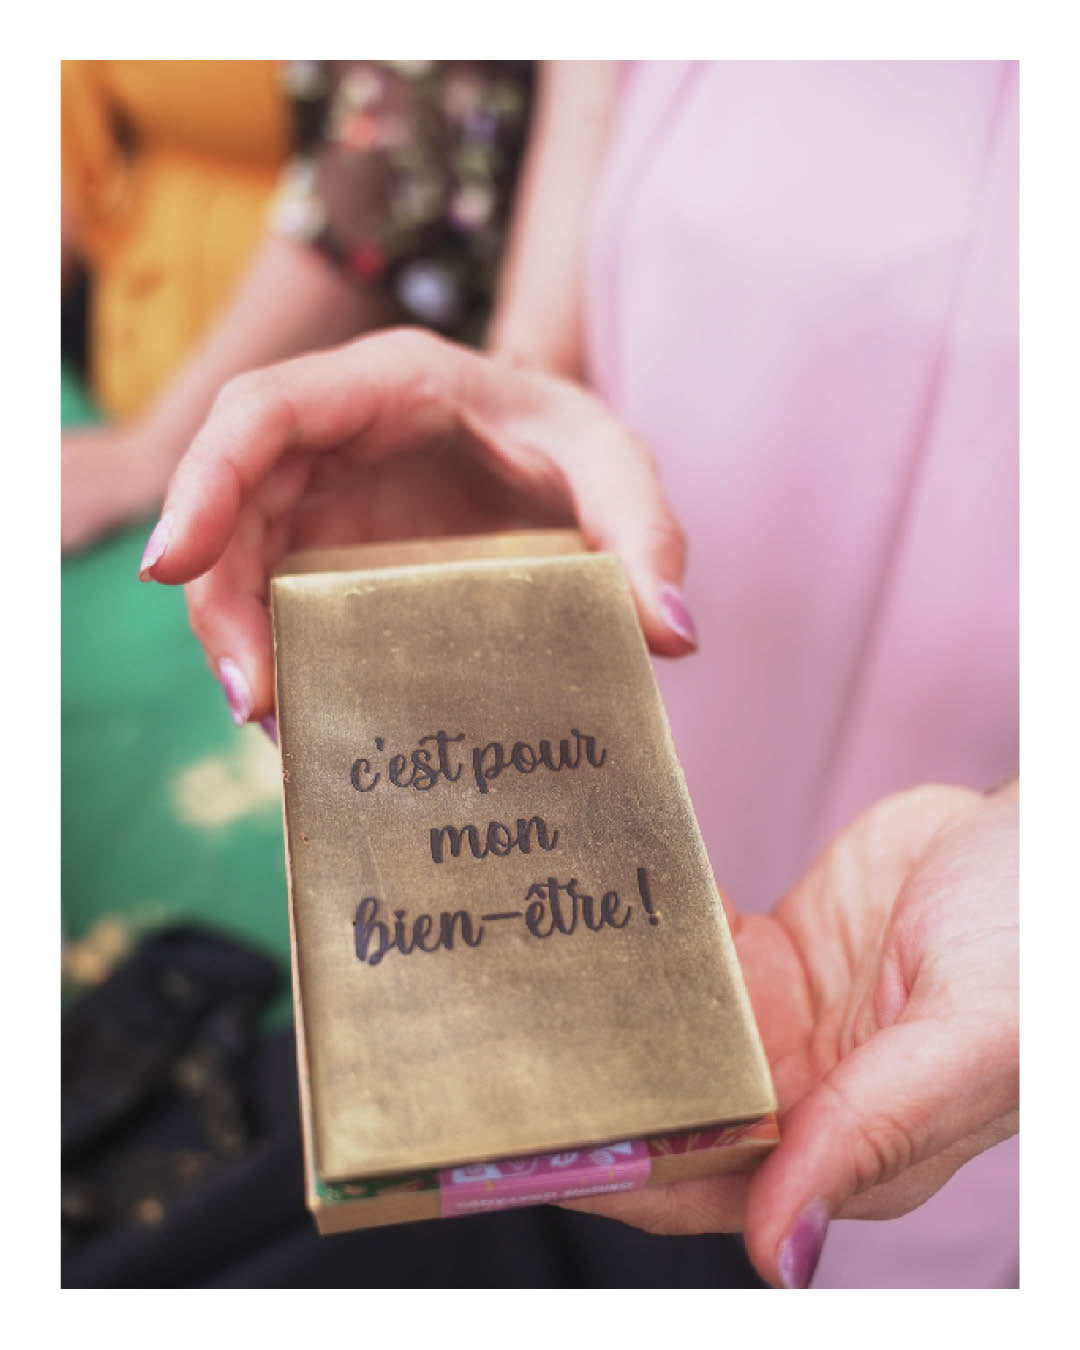 c'est pour
mon
bien-être!